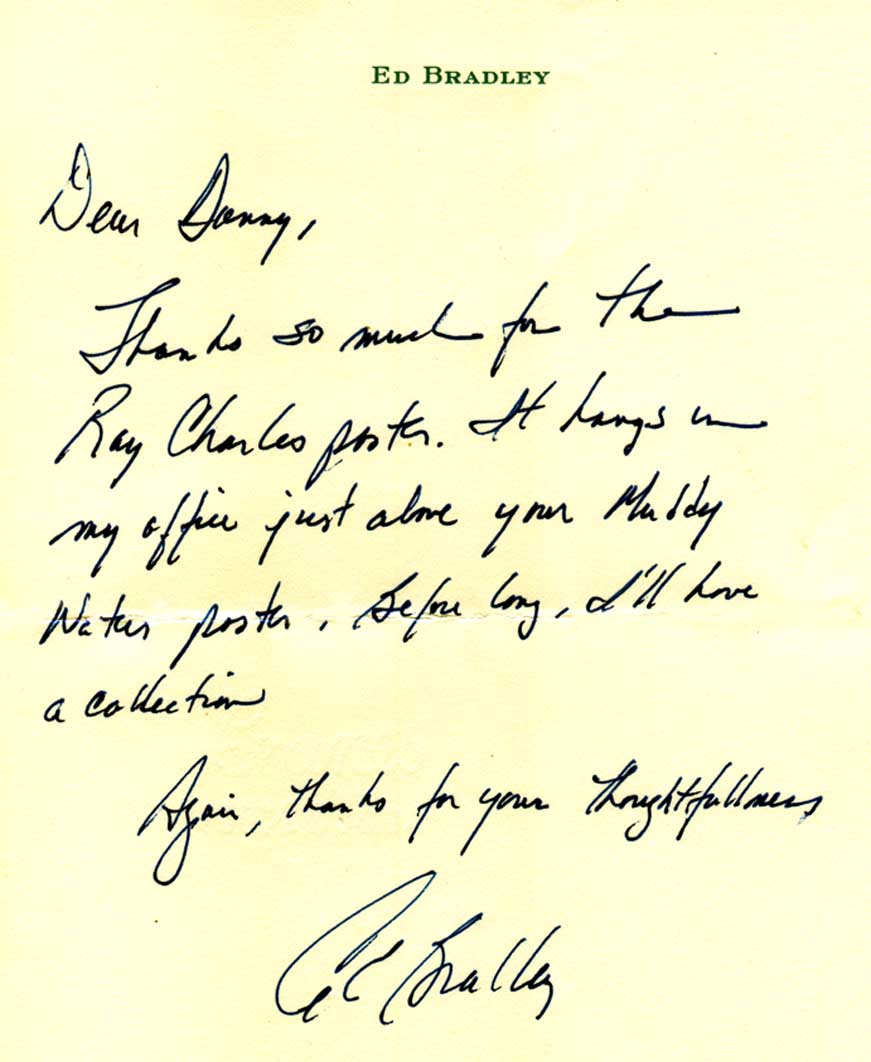 ED BRADLEY
Dear Danny,
Thanks so much for the
Ray Charles poster. It hangs in
my office just above your Muddy
Waters poster. Before long, I'll have
a collection
Again, thanks for your thoughtfullness
Ed Bradley